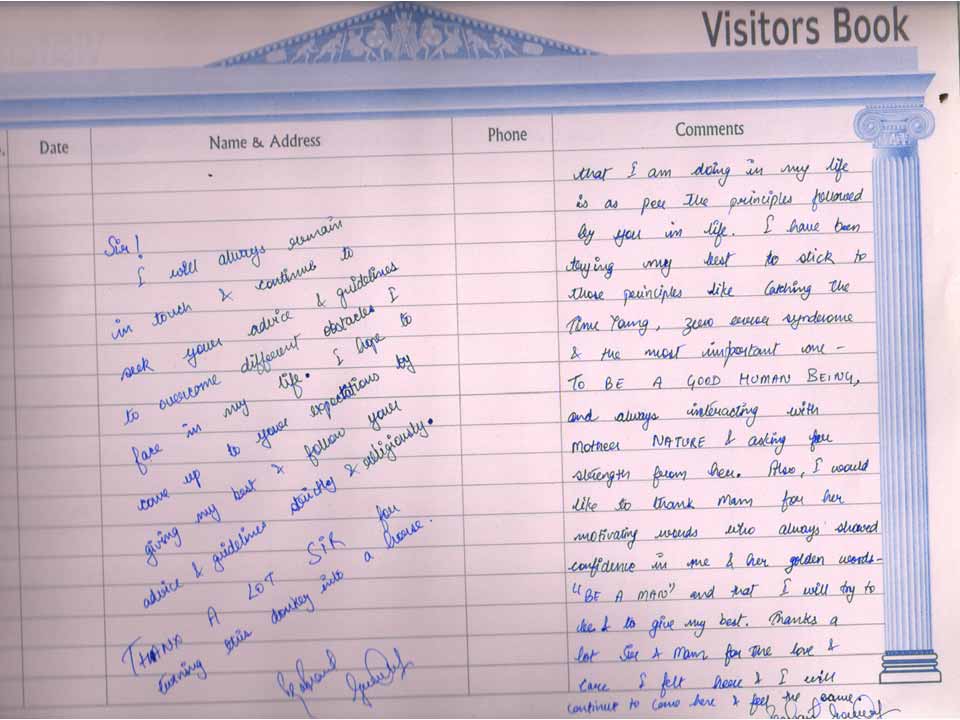 Visitors Book
Date
Name & Address
Phone
Comments
Sir!
I will always remain
in touch & continue to
seek your advice & guidelines
to overcome different obstacles I
face in my life. I hope to
come up to your expectations by
giving my best & follow your
advice & guidelines strictly & religiously.
THANX A LOT SIR for
turning this donkey into a horse.
that I am doing in my life
is as per the principles followed
by you in life. I have been
trying my best to stick to
those principles like Catching the
Time Young, zero error syndrome
& the most important one -
TO BE A GOOD HUMAN BEING,
and always interacting with
Mother NATURE & asking for
strength from her. Also, I would
like to thank Mam for her
motivating words who always showed
confidence in me & her golden words-
"BE A MAN" and that I will try to
be & to give my best. Thanks a
lot Sir & Mam for the love &
care I felt here & I will
continue to come here & feel the same.